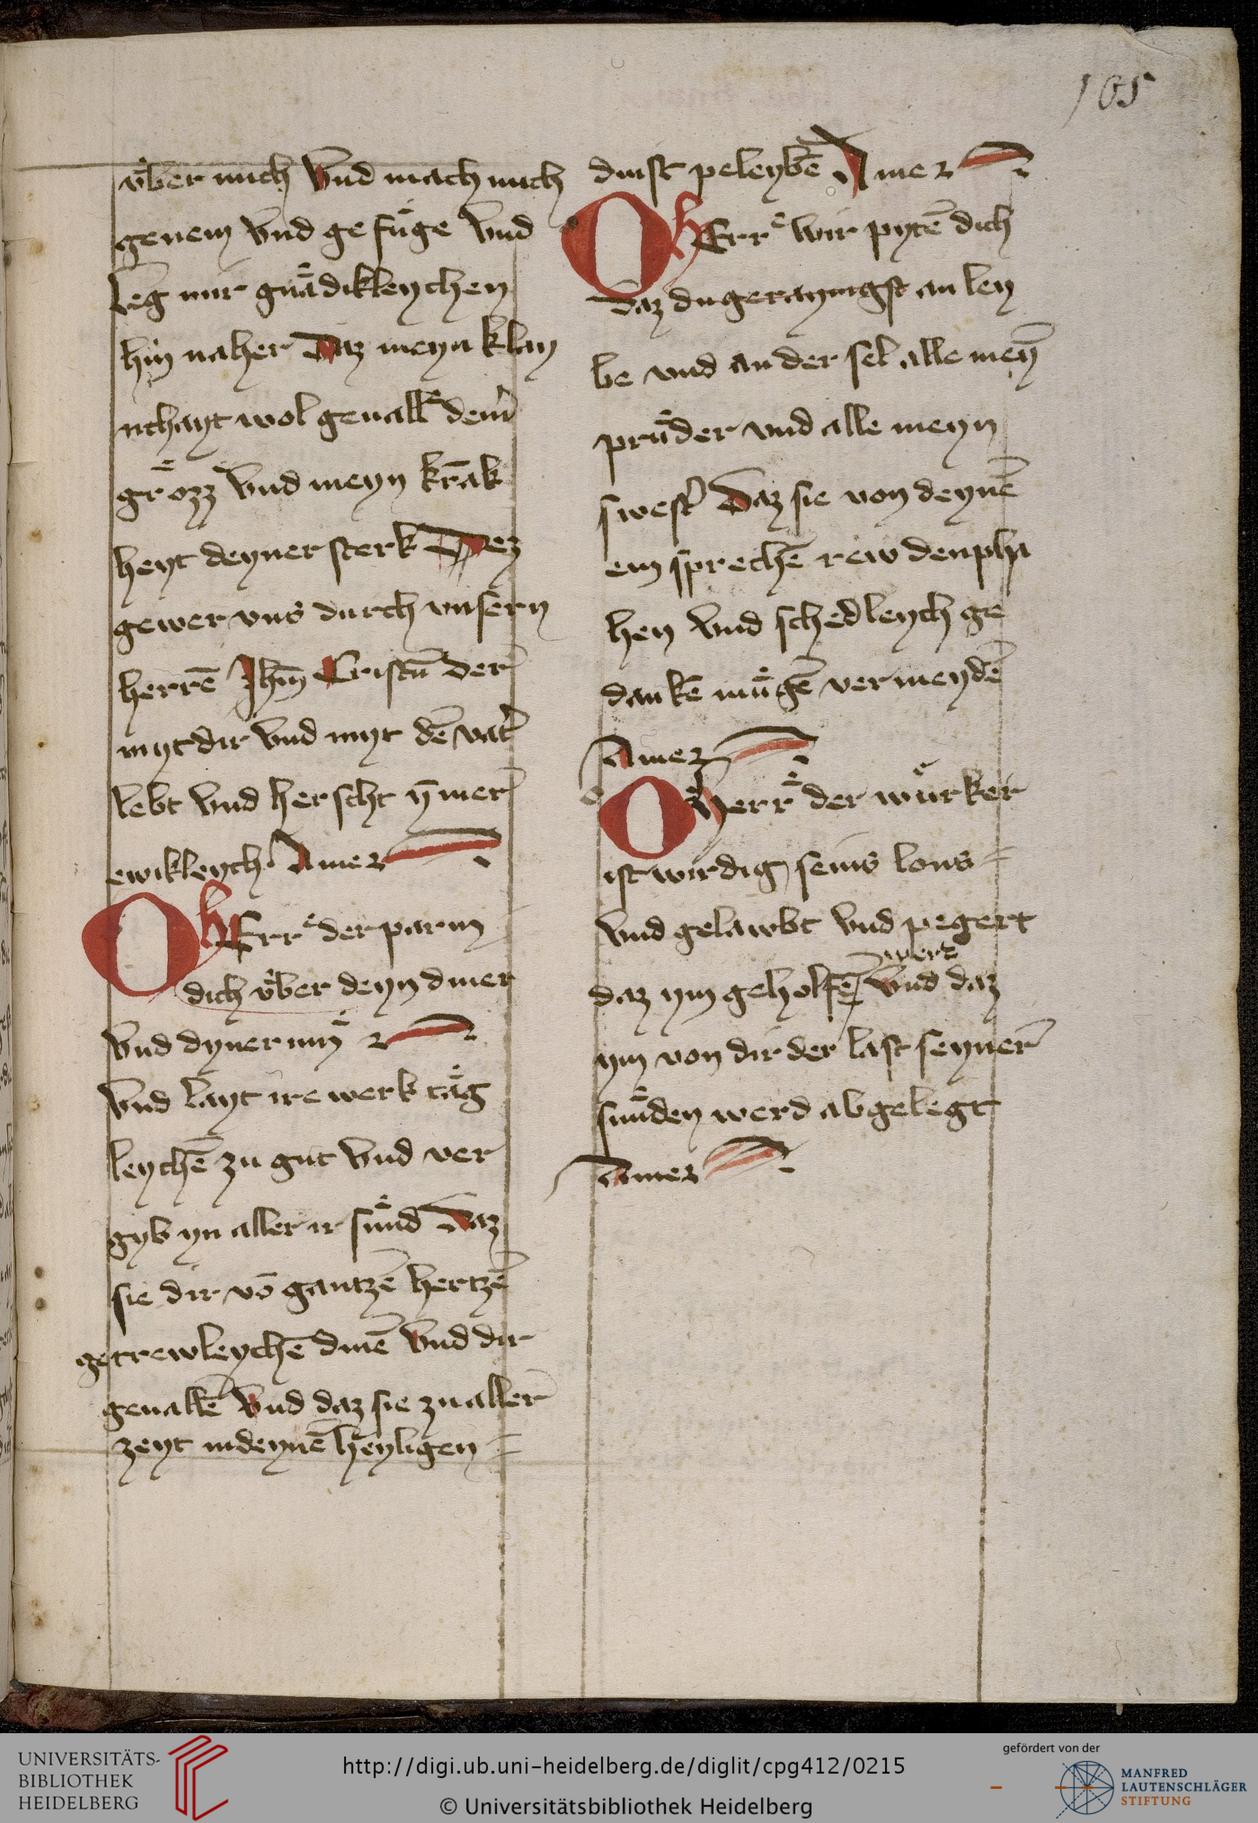 105
vͤber mich Vnd mach mich
genem Vnd gefuͤge Vnd
leg mir gnaͤdikleychen
hin naher Daz meyn klay
nthayt wol geuallͤ dem̄
groͤzz Vnd meyn krāk
heyt deyner sterk Dez
gewer vns durch vnsern
herrē Jhm̄ Cristū der
myt dir Vnd myt dē vat̄
lebt Vnd herscht ȳmer
ewikleych Amen
O hErrͤ der parm
dich vͤber deyn diner
Vnd dynerinͤ
Vnd layt ire werk taͤg
leychē zu gut Vnd ver
gyb yn aller ir suͤnd Daz
sie dir vō gantzē hertzē
getrewleychē dinē Vnd dir
geuallē Vnd daz sie zu aller
zeyt in deynē heyligen =
dinst peleybē Amen
O hErrͤ wir pytē dich
Daz du geraynigst an ley
be vnd an der sel alle meyn̄
pruͤder vnd alle meyn
swest̄ Daz sie von deynē
ein sprechē rew den pha
hen Vnd schedleych ge
dankē muͤgē vermeydē
Amen
O herrͤ der wuͤrker
ist wirdig seins lons =
Vnd gelawbt Vnd pegert
werd
daz ym geholfē Vnd daz
ym von dir der last seyner
suͤnden werd abgelegt
Amen
UNIVERSITÄTS-
BIBLIOTHEK
HEIDELBERG
http://digi.ub.uni-heidelberg.de/diglit/cpg412/0215
© Universitätsbibliothek Heidelberg
gefördert von der
MANFRED
LAUTENSCHLÄGER
STIFTUNG